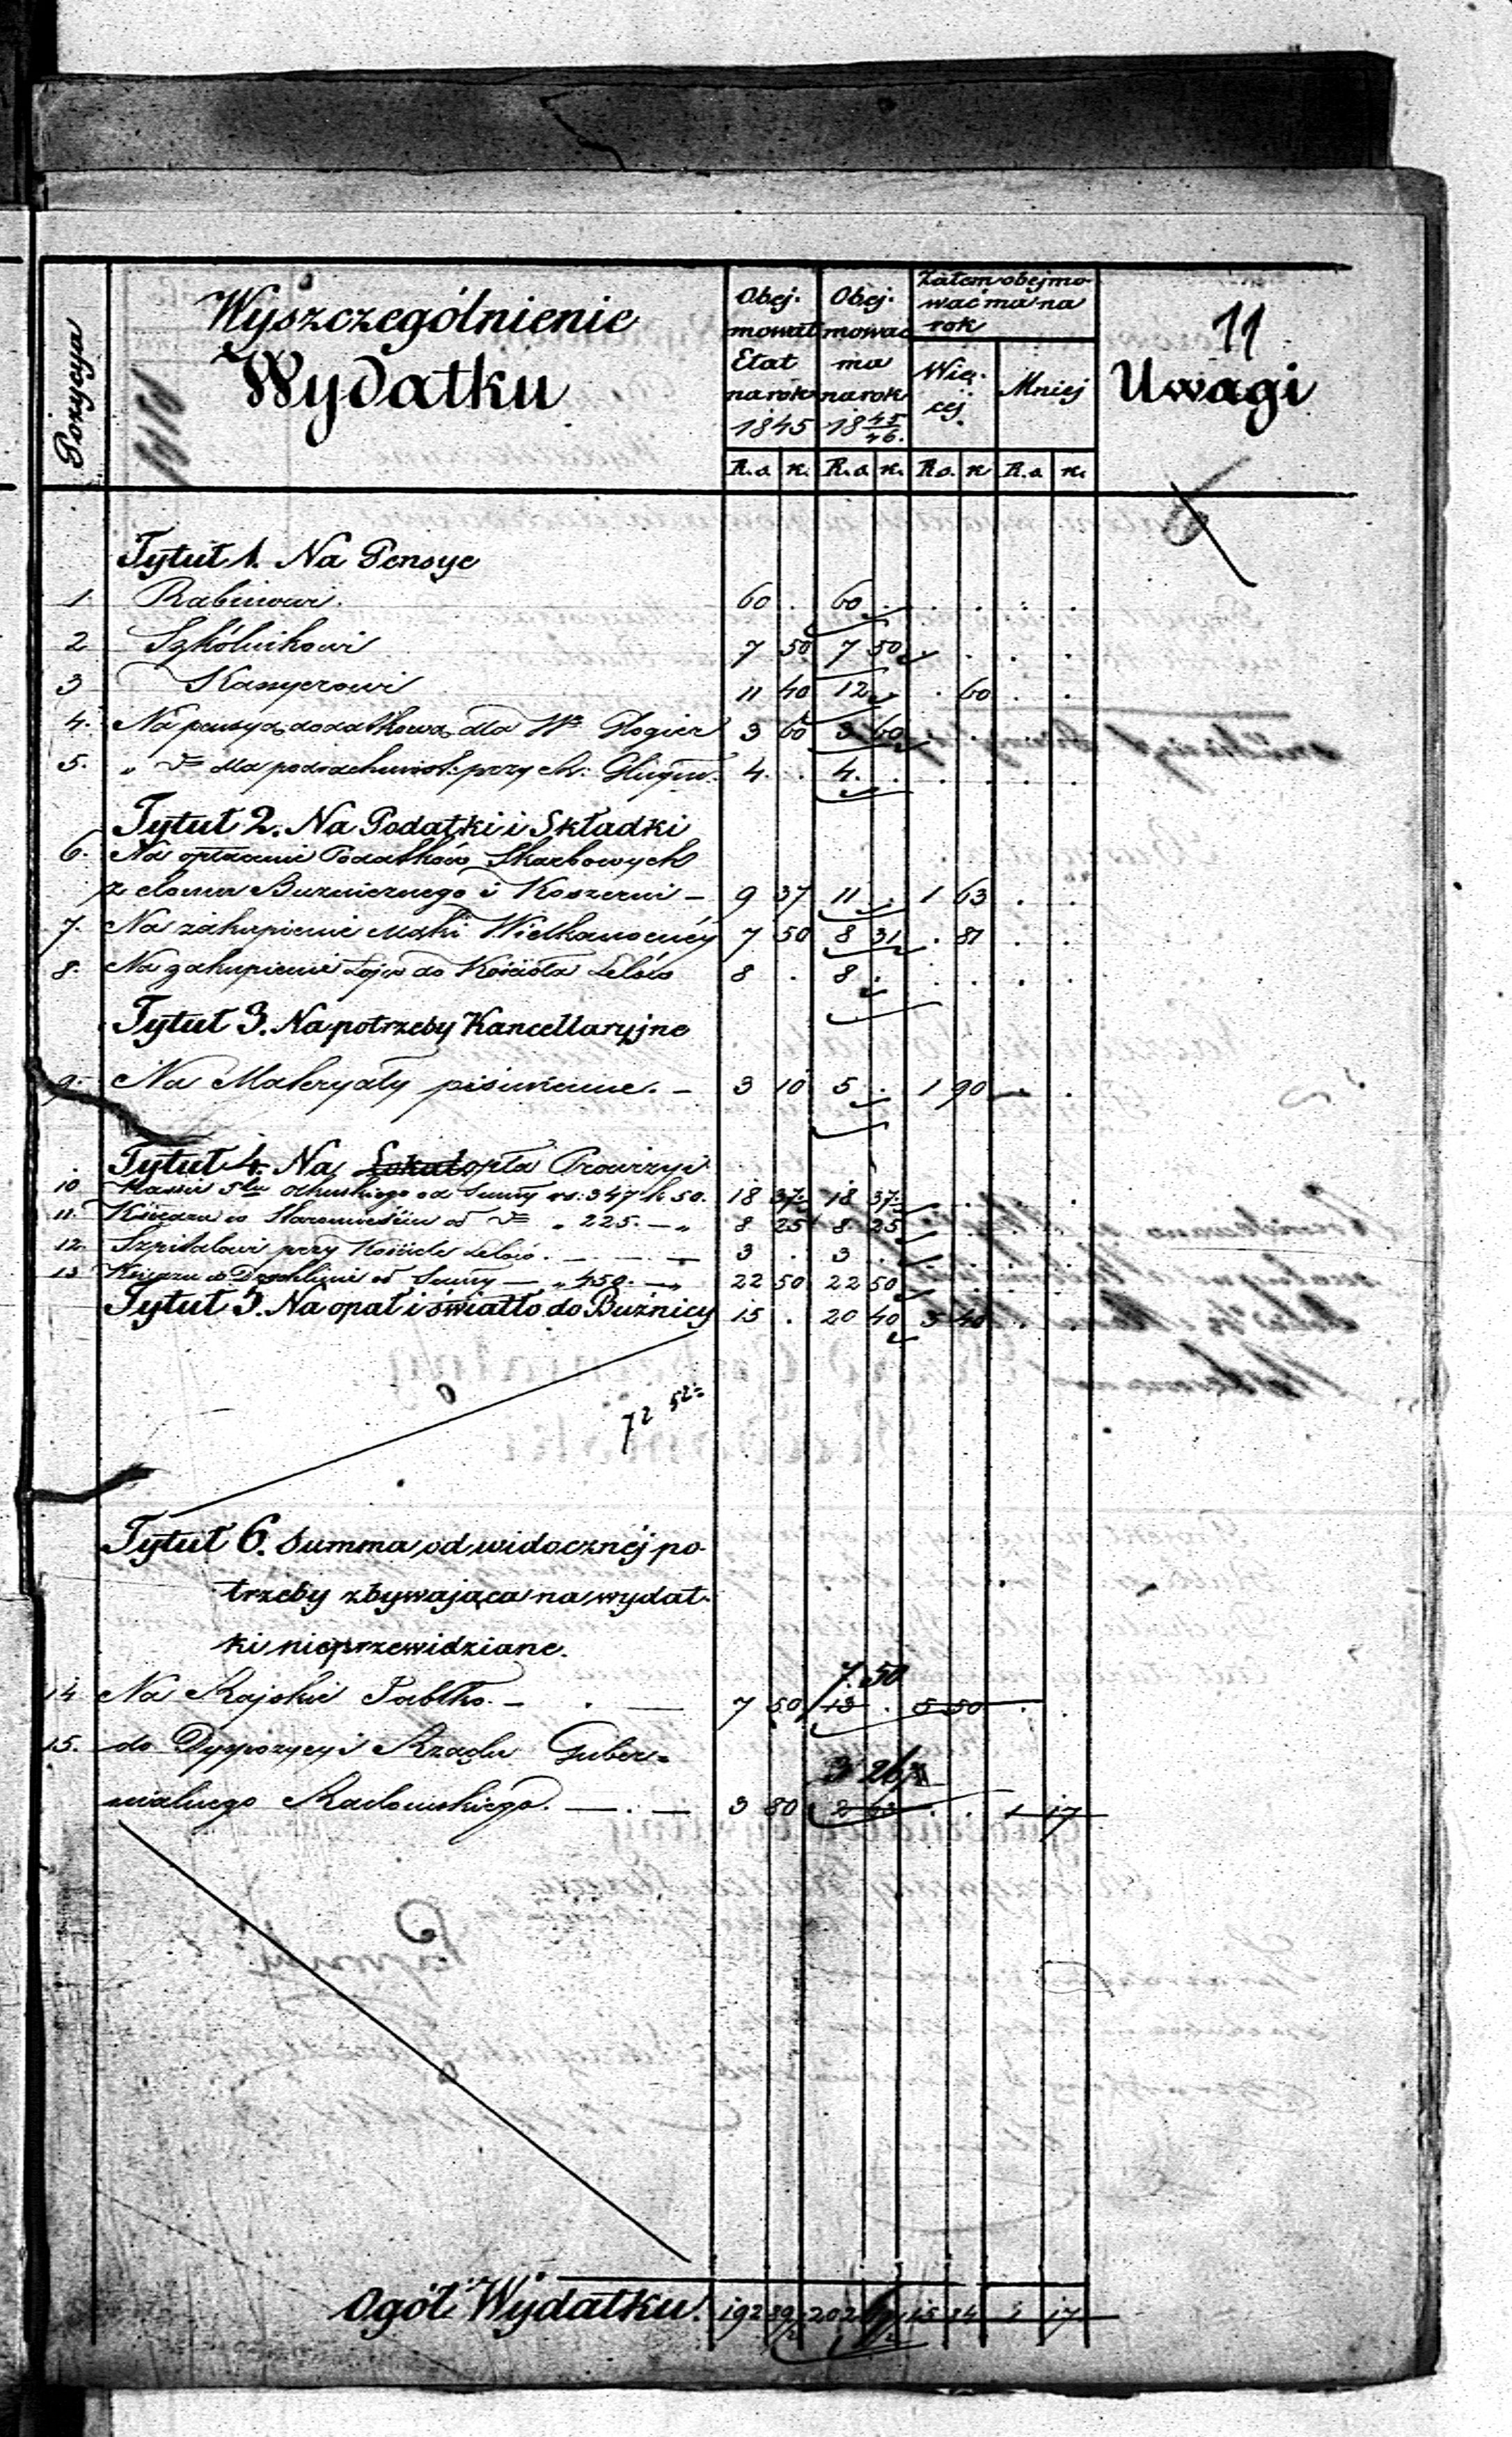 11
Pozycya
Wyszczególnienie
Wydatku
Obej-
mował
Etat
na rok
1845
Obej-
mować
ma
na rok
18 45/46.
Zatem obejmo-
wać ma na
rok
Wię-
cej.
Mniej
Uwagi
R.s. k. R.s. k. R.s. k. R.s. k.
Tytuł 1. Na Pensye
1. Rabinowi. 60 . 60 . . . . .
2 Szkólnikowi 7 50 7 50 . . . .
3 Kassyerowi 11 40 12 . . 60 . .
4. Na pensyą dodatkową dla Wo Glogier 3 60 3 60 . . . .
5. " do dla podrachmist. przy 4. . 4. . . . . .
Tytuł 2. Na Podatki i Składki
6. Na opłacanie Podatków Skarbowych
z domu Buznicznego i Koszerni – 9 37 11 . 1 63 . .
7. Na zakupienie Mąki Wielkanocnéy 7 50 8 31 . 81 . .
8. Na zakupienie Łoju do Kościoła Lelów 8 . 8 . . . . .
Tytuł 3. Na potrzeby Kancellaryjne
9. Na Materyały piśmienne. – 3 10 5 . 1 90 . .
Tytuł 4. Na Lokal opła Prowizyi
10 Kassie Olkuskiego od Summy rs. 347 k 50. 18 37 18 37 . . . .
11. Księdzu w Staromieściu od do " 225. – " 8 25 8 25 . . . .
12. Szpitalowi przy Kościele Lelów. 3 . 3 . . . . .
13 Księdzu w od Summy – " 450. – " 22 50 22 50 . . . .
Tytuł 5. Na opał i światło do Buźnicy 15 . 20 40 5 40 . .
72 52
Tytuł 6. Summa od widocznéj po-
trzeby zbywająca na wydat-
ki nieprzewidziane.
7. 50
14 Na Rajskie Jabłko. – 7 50 13 . 5 50 . .
15. do Dyspozycyi Rządu Guber=
3 26
nialnego Radomskiego. 3 80 2 63 . . 1 17
Ogół Wydatku. 192 89 202 15 84 1 17